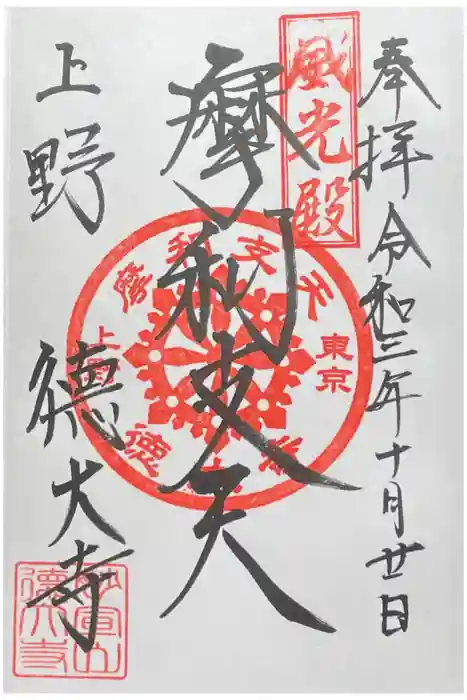 奉拝 令和三年十月廿日
威光殿
摩利支天
上野 徳大寺
摩利支天
東京
上野
徳大寺
妙宣山
徳大寺